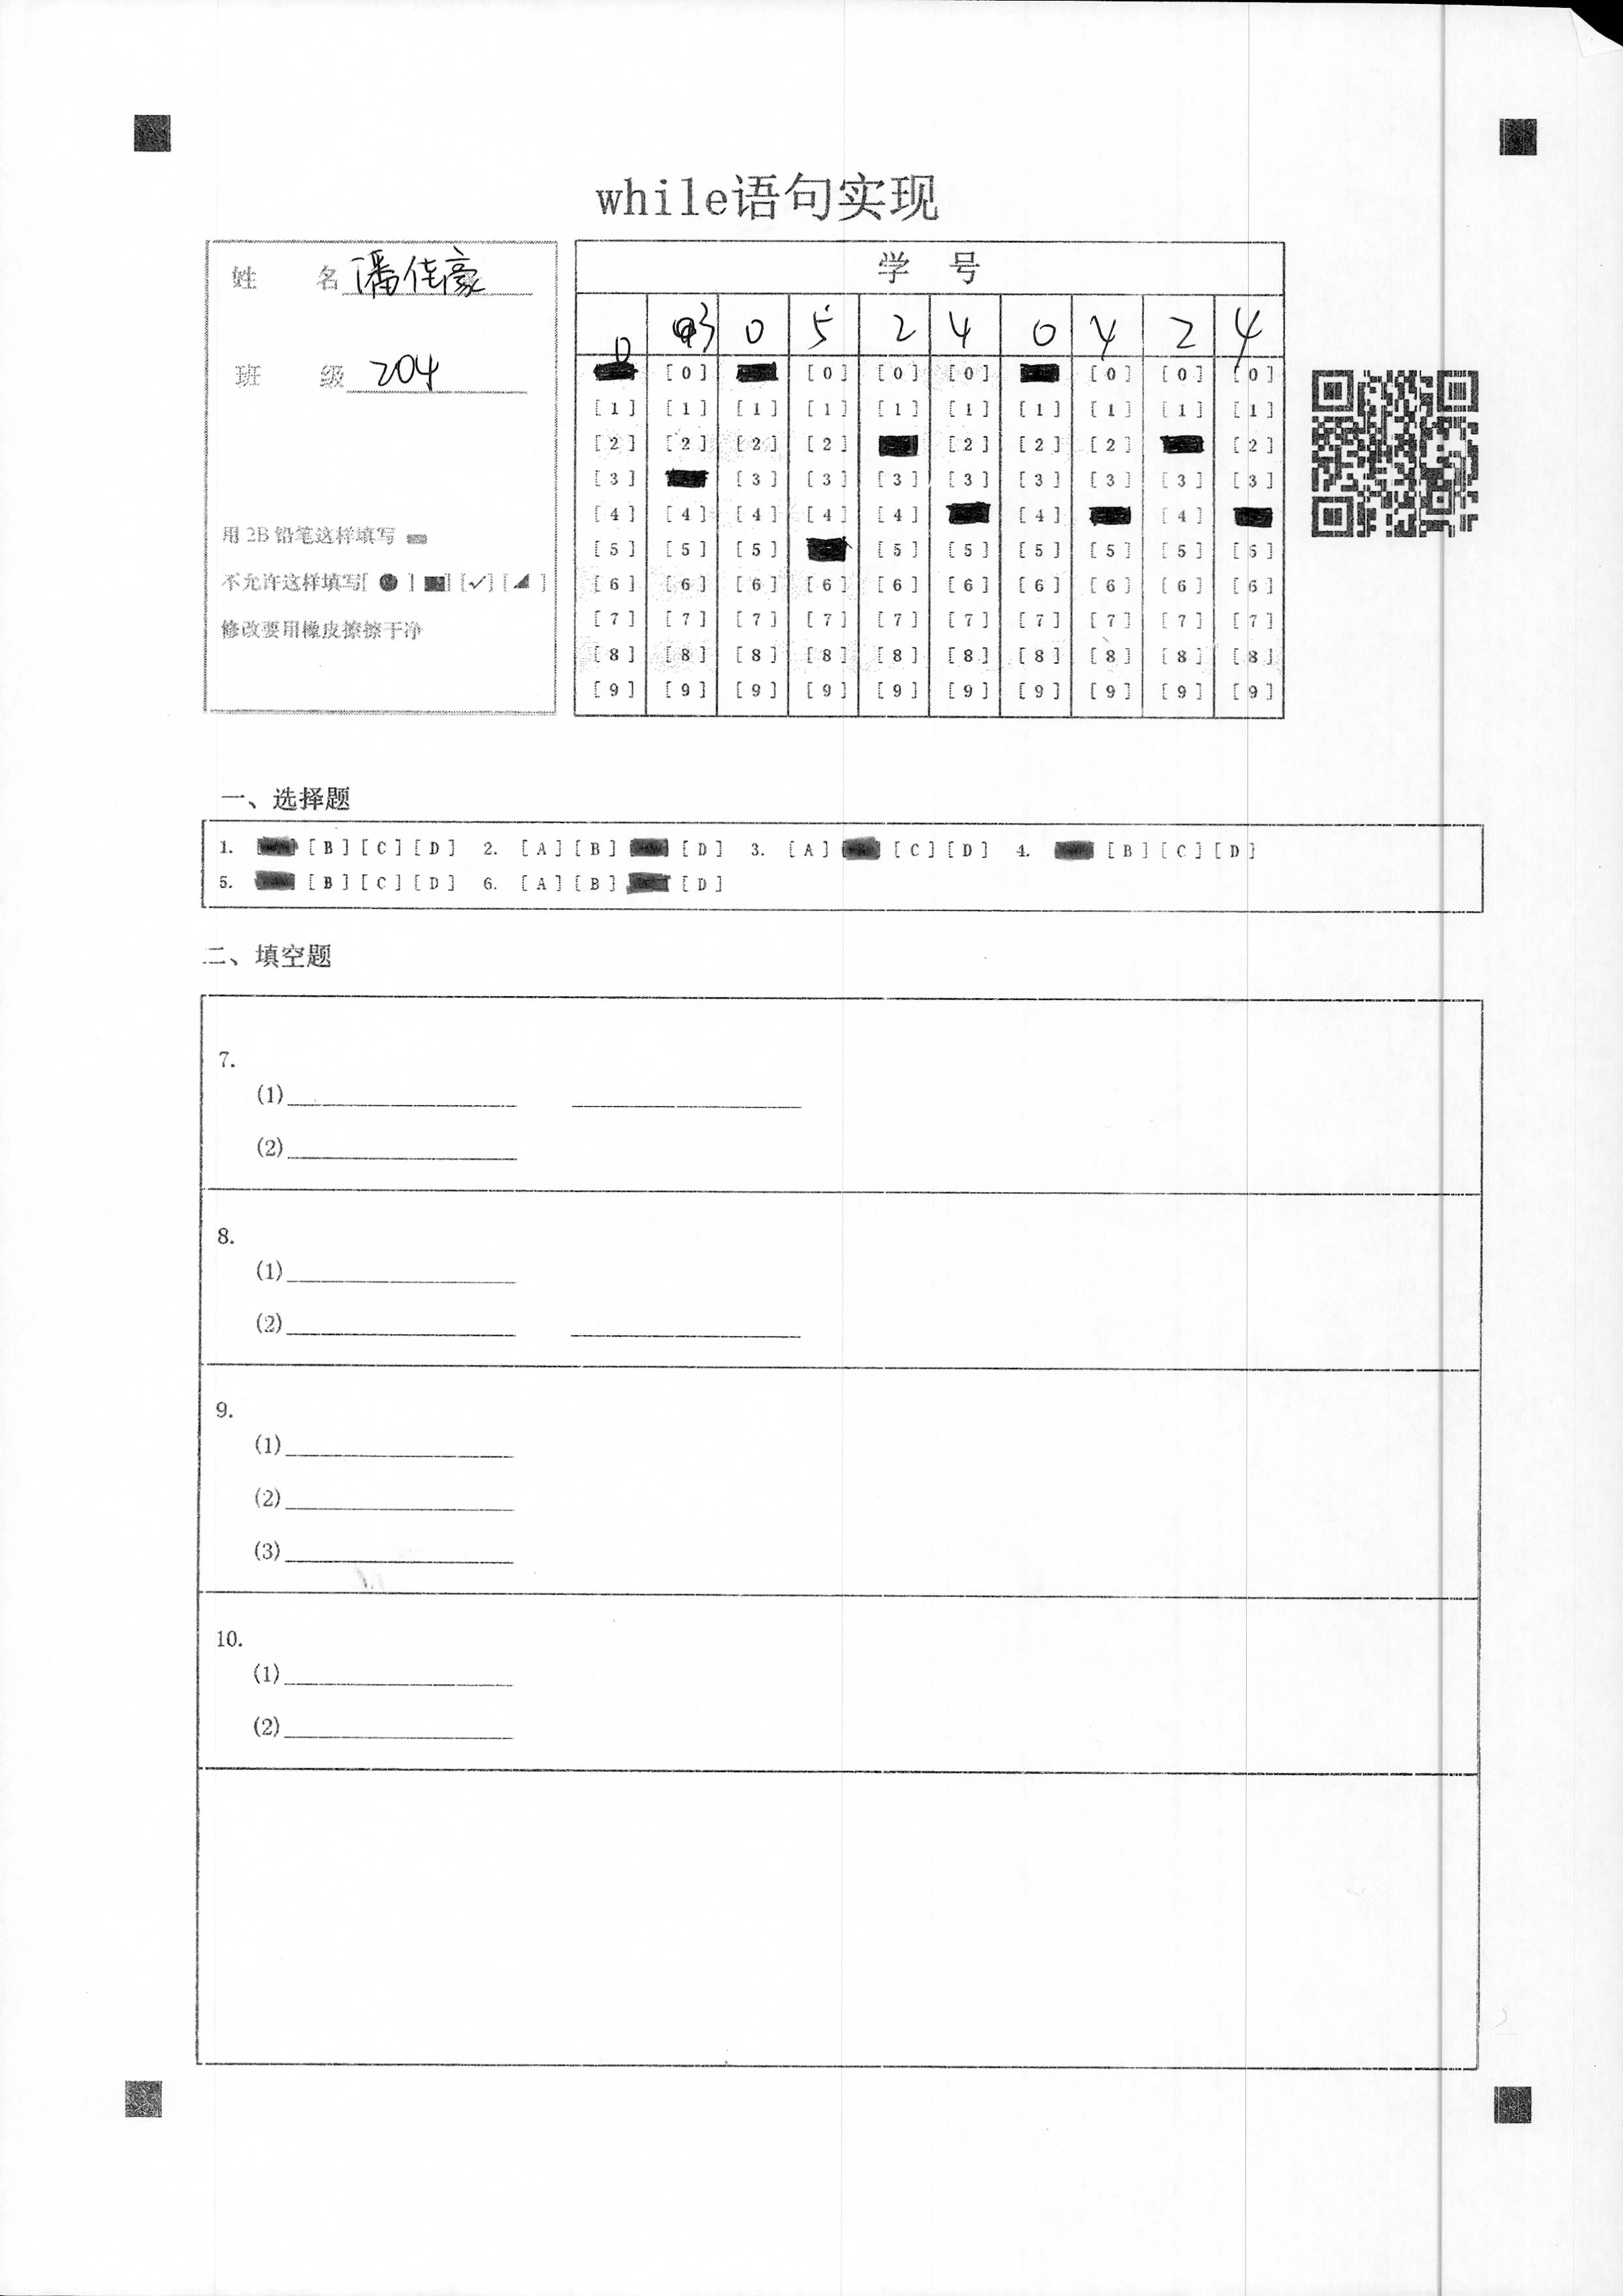 while语句实现
姓 名 潘佳豪
班 级 204
用 2B 铅笔这样填写
不允许这样填写[ ● ] [■] [✓] [◢ ]
修改要用橡皮擦擦干净
学 号
0 3 0 5 2 4 0 4 2 4
[0] [0] [0] [0] [0] [0] [0]
[1] [1] [1] [1] [1] [1] [1] [1] [1] [1]
[2] [2] [2] [2] [2] [2] [2] [2]
[3] [3] [3] [3] [3] [3] [3] [3] [3]
[4] [4] [4] [4] [4] [4] [4]
[5] [5] [5] [5] [5] [5] [5] [5] [5]
[6] [6] [6] [6] [6] [6] [6] [6] [6] [6]
[7] [7] [7] [7] [7] [7] [7] [7] [7] [7]
[8] [8] [8] [8] [8] [8] [8] [8] [8] [8]
[9] [9] [9] [9] [9] [9] [9] [9] [9] [9]
一、选择题
1. [B] [C] [D] 2. [A] [B] [D] 3. [A] [C] [D] 4. [B] [C] [D]
5. [B] [C] [D] 6. [A] [B] [D]
二、填空题
7.
(1)
(2)
8.
(1)
(2)
9.
(1)
(2)
(3)
10.
(1)
(2)